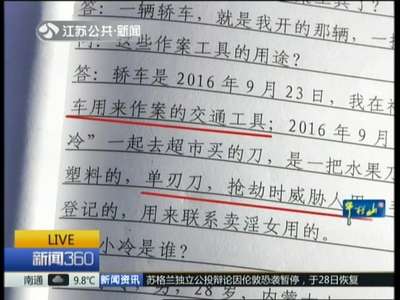 江苏公共·新闻
答：一辆轿车，就是我开的那辆，一把
问：这些作案工具的用途？
答：轿车是 2016 年 9 月 23 日，我在
车用来作案的交通工具；2016 年 9 月
冷”一起去超市买的刀，是一把水果刀
塑料的，单刃刀，抢劫时威胁人用
登记的，用来联系卖淫女用的。
小冷是谁？
28 岁，内蒙古
LIVE
新闻360
南通 9.8℃ 新闻资讯 苏格兰独立公投辩论因伦敦恐袭暂停，于28日恢复